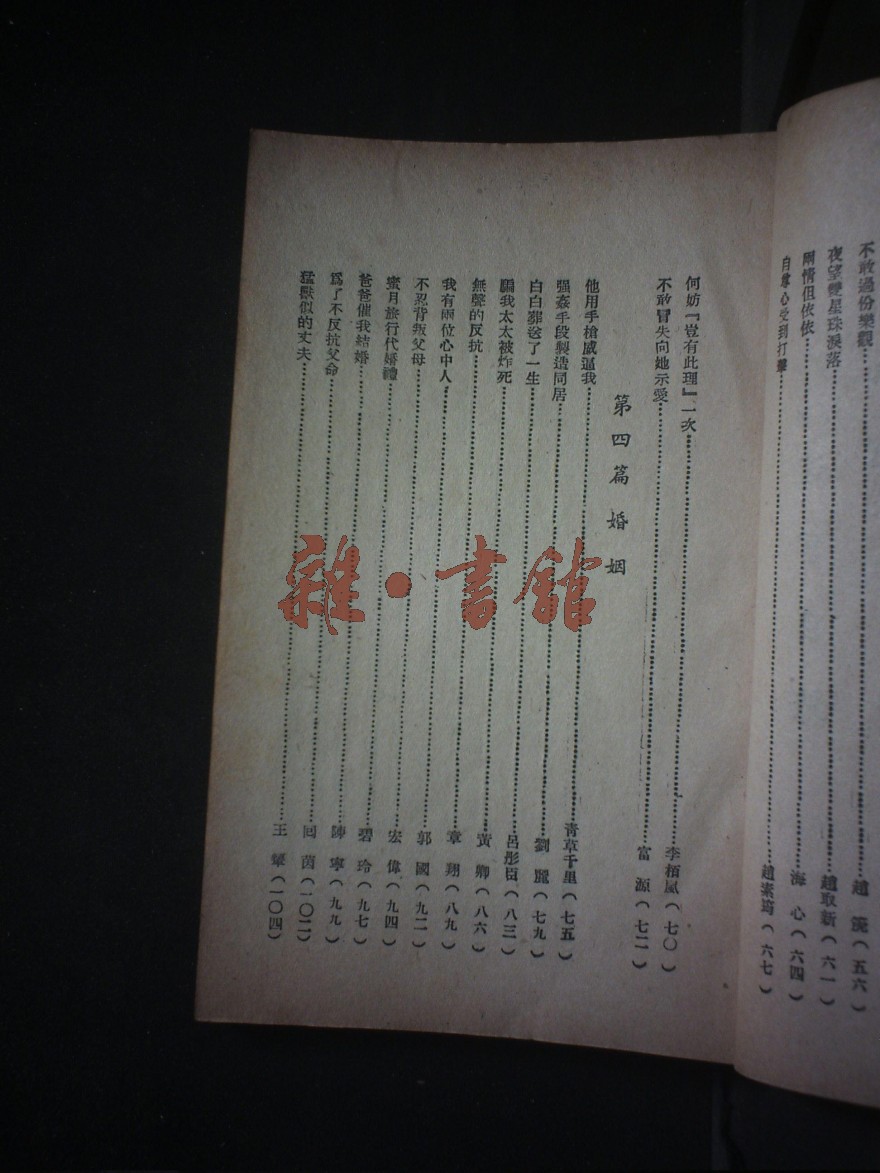 不敢過份樂觀……趙　　(五六)
夜望雙星珠淚落……趙取新(六一)
兩情但依依……海　心(六四)
自尊心受到打擊……趙素筠(六七)
何妨『豈有此理』一次……李栢嵐(七〇)
不敢冒失向她示愛……富　源(七二)
第四篇 婚姻
他用手槍威逼我……青草千里(七五)
強姦手段製造同居……劉　　(七九)
白白葬送了一生……呂彤臣(八三)
騙我太太被炸死……黃　卿(八六)
無聲的反抗……章　翔(八九)
我有兩位心中人……郭　國(九二)
不忍背叛父母……宏　偉(九四)
蜜月旅行代婚禮……碧　玲(九七)
爸爸催我結婚……陳　寧(九九)
爲了不反抗父命……回　茵(一〇二)
猛獸似的丈夫……王　　(一〇四)
雜·書館